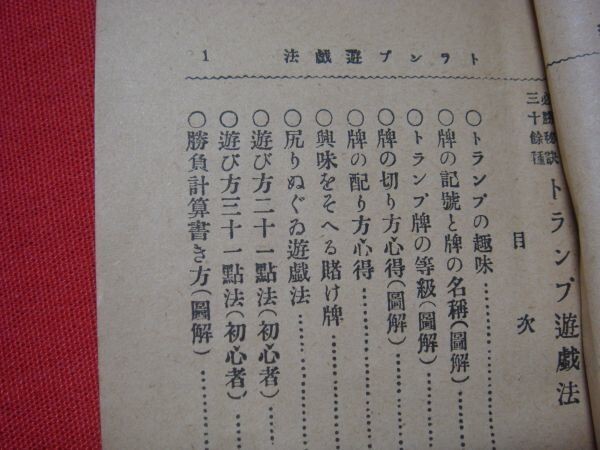 トランプ遊戯法 1
必勝秘訣
三十餘種
トランプ遊戯法
目次
○トランプの趣味…………
○牌の記號と牌の名稱(圖解)……
○トランプ牌の等級(圖解)……
○牌の切り方心得(圖解)……
○牌の配り方心得…………
○興味をそへる賭け牌…………
○尻りぬぐゐ遊戯法…………
○遊び方二十一點法(初心者)……
○遊び方三十一點法(初心者)……
○勝負計算書き方(圖解)……